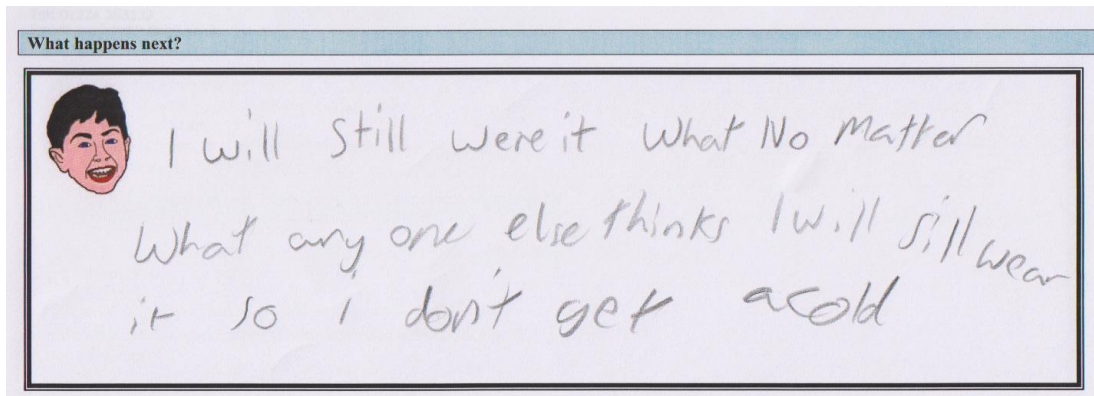 What happens next?
I will Still were it What No Matter
What any one else thinks I will sill wear
it so i don't get a cold